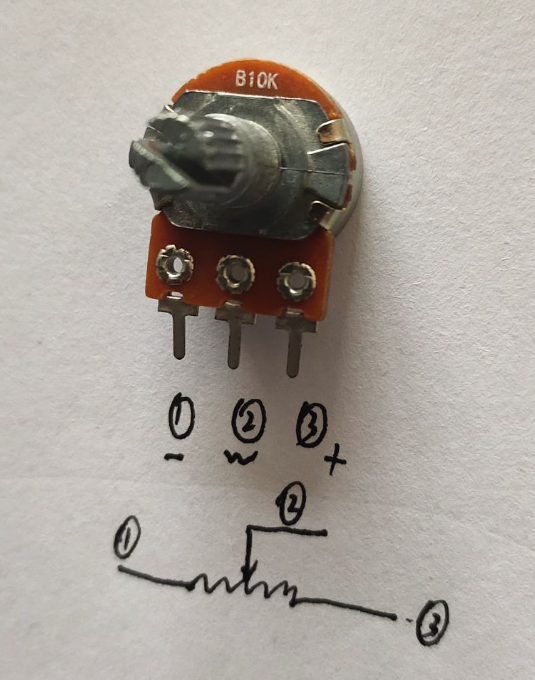 B10K
① ② ③
- w +
②
①
③